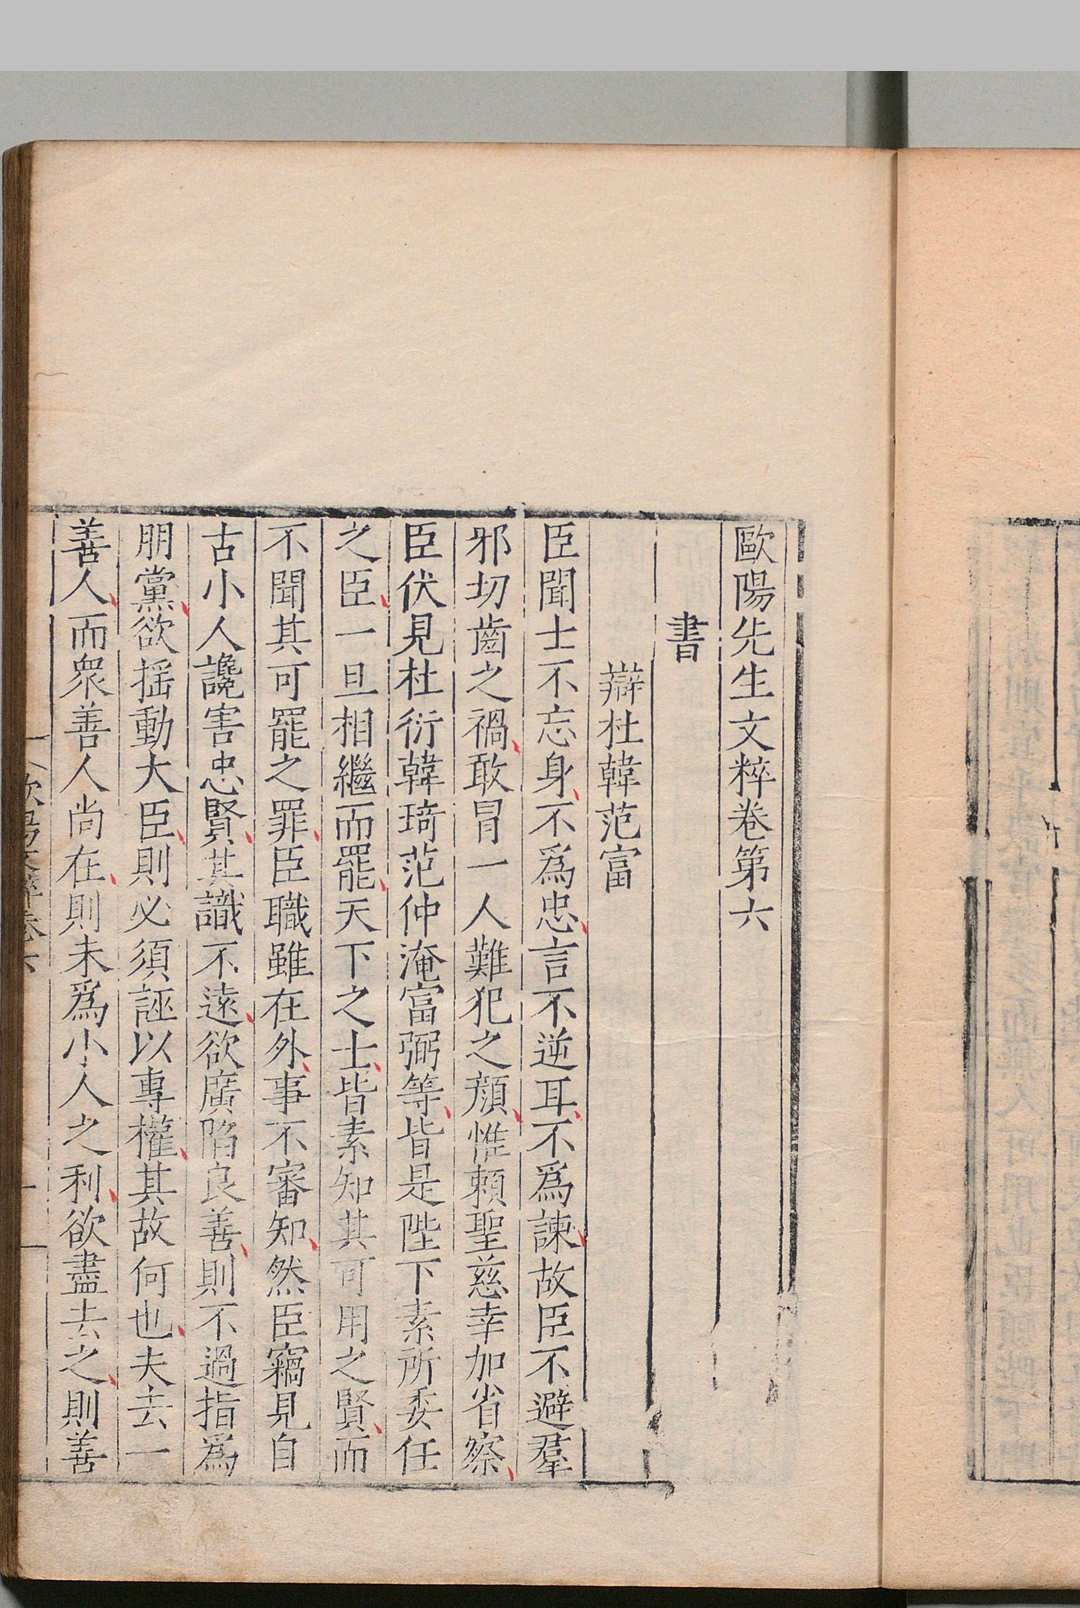 歐陽先生文粹卷第六
書
辯杜韓范富
臣聞士不忘身不爲忠言不逆耳不爲諫故臣不避羣
邪切齒之禍敢冒一人難犯之顔惟頼聖慈幸加省察
臣伏見杜衍韓琦范仲淹富弼等皆是陛下素所委任
之臣一旦相繼而罷天下之士皆素知其可用之賢而
不聞其可罷之罪臣職雖在外事不審知然臣竊見自
古小人讒害忠賢其識不遠欲廣陷良善則不過指爲
朋黨欲揺動大臣則必須誣以專權其故何也夫去一
善人而衆善人尚在則未爲小人之利欲盡去之則善